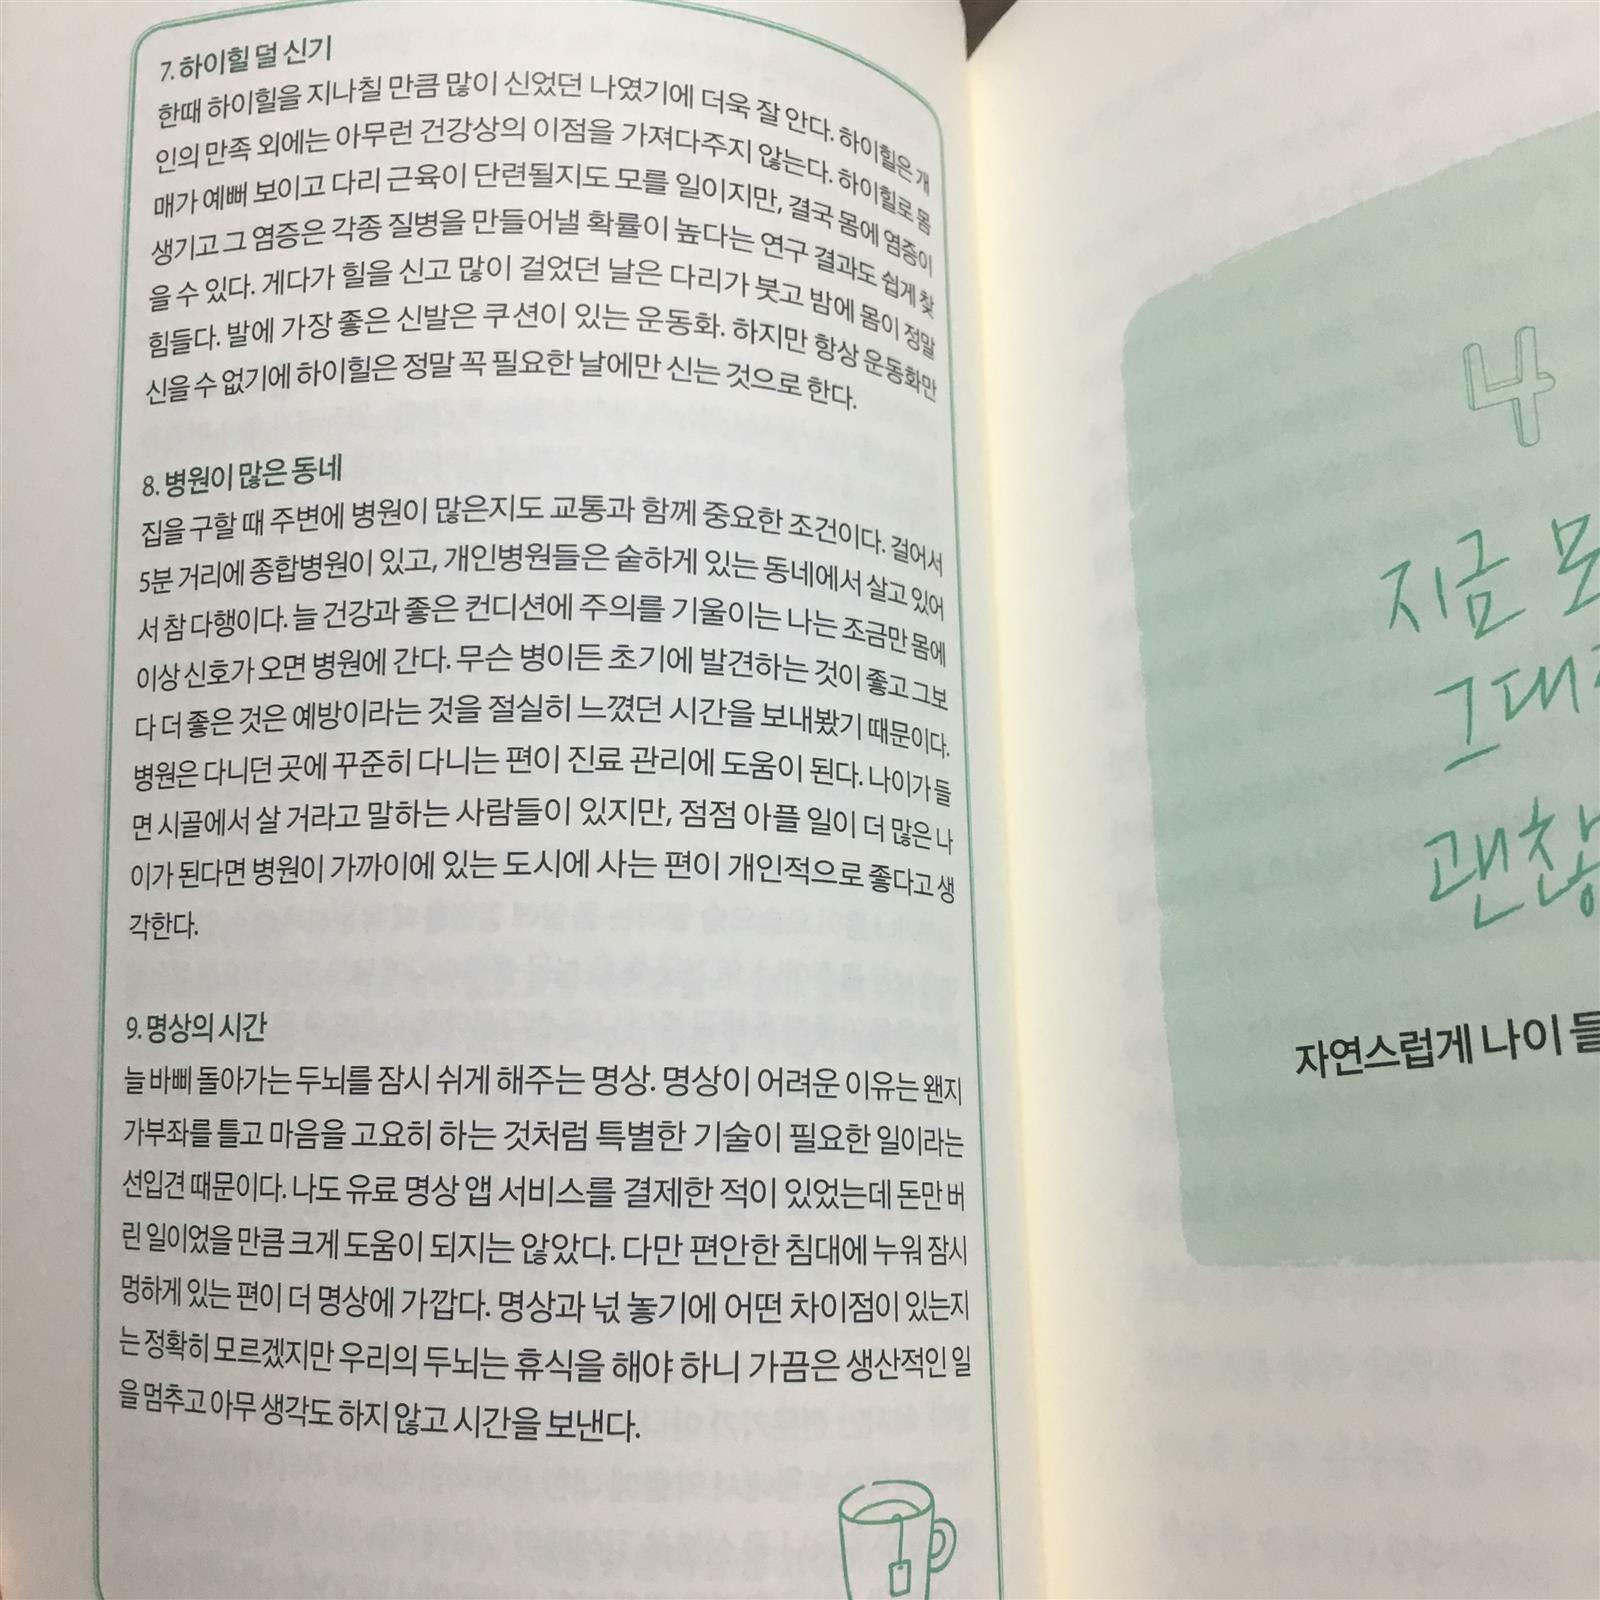 7. 하이힐 덜 신기
한때 하이힐을 지나칠 만큼 많이 신었던 나였기에 더욱 잘 안다. 하이힐은 개
인의 만족 외에는 아무런 건강상의 이점을 가져다주지 않는다. 하이힐로 몸
매가 예뻐 보이고 다리 근육이 단련될지도 모를 일이지만, 결국 몸에 염증이
생기고 그 염증은 각종 질병을 만들어낼 확률이 높다는 연구 결과도 쉽게 찾
을 수 있다. 게다가 힐을 신고 많이 걸었던 날은 다리가 붓고 밤에 몸이 정말
힘들다. 발에 가장 좋은 신발은 쿠션이 있는 운동화. 하지만 항상 운동화만
신을 수 없기에 하이힐은 정말 꼭 필요한 날에만 신는 것으로 한다.
8. 병원이 많은 동네
집을 구할 때 주변에 병원이 많은지도 교통과 함께 중요한 조건이다. 걸어서
5분 거리에 종합병원이 있고, 개인병원들은 숱하게 있는 동네에서 살고 있어
서 참 다행이다. 늘 건강과 좋은 컨디션에 주의를 기울이는 나는 조금만 몸에
이상 신호가 오면 병원에 간다. 무슨 병이든 초기에 발견하는 것이 좋고 그보
다 더 좋은 것은 예방이라는 것을 절실히 느꼈던 시간을 보내봤기 때문이다.
병원은 다니던 곳에 꾸준히 다니는 편이 진료 관리에 도움이 된다. 나이가 들
면 시골에서 살 거라고 말하는 사람들이 있지만, 점점 아플 일이 더 많은 나
이가 된다면 병원이 가까이에 있는 도시에 사는 편이 개인적으로 좋다고 생
각한다.
9. 명상의 시간
늘 바삐 돌아가는 두뇌를 잠시 쉬게 해주는 명상. 명상이 어려운 이유는 왠지
가부좌를 틀고 마음을 고요히 하는 것처럼 특별한 기술이 필요한 일이라는
선입견 때문이다. 나도 유료 명상 앱 서비스를 결제한 적이 있었는데 돈만 버
린 일이었을 만큼 크게 도움이 되지는 않았다. 다만 편안한 침대에 누워 잠시
멍하게 있는 편이 더 명상에 가깝다. 명상과 넋 놓기에 어떤 차이점이 있는지
는 정확히 모르겠지만 우리의 두뇌는 휴식을 해야 하니 가끔은 생산적인 일
을 멈추고 아무 생각도 하지 않고 시간을 보낸다.
4
지금
자연스럽게 나이